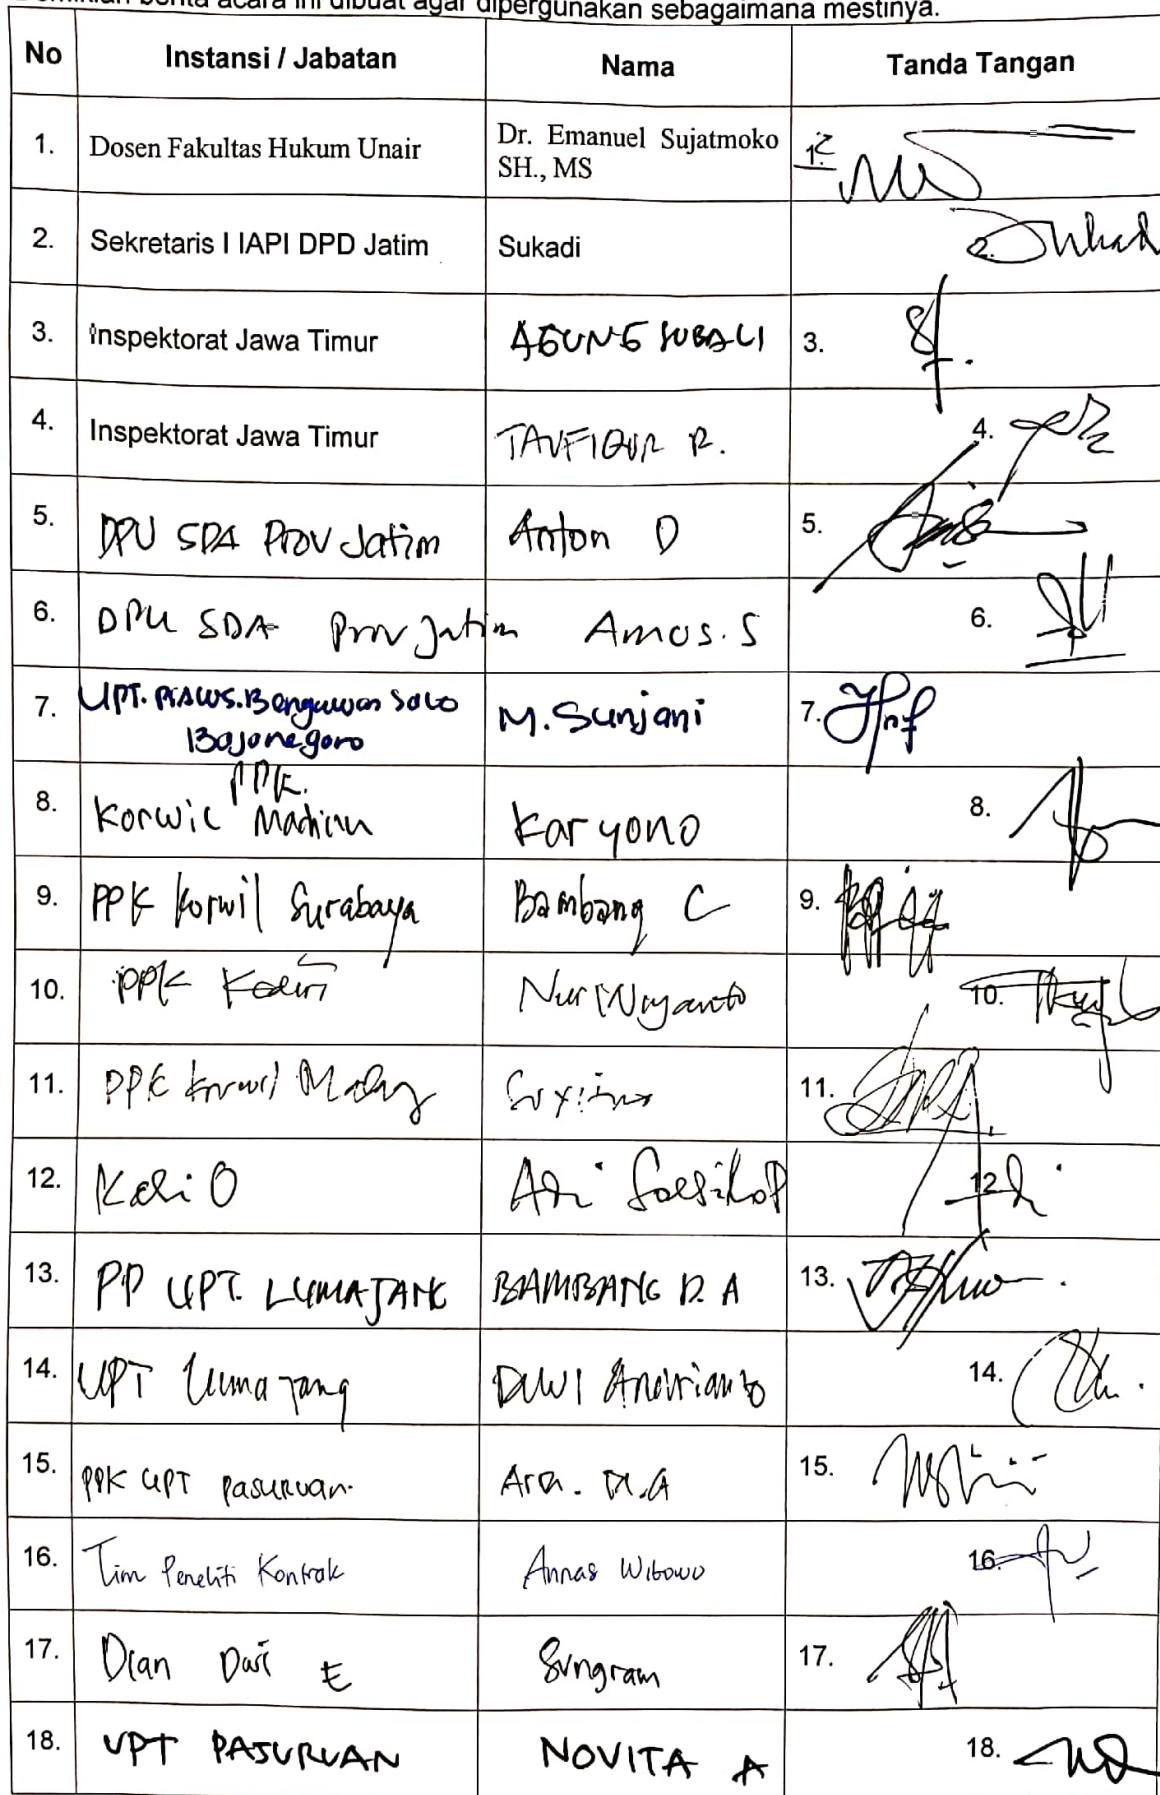 Demikian berita acara ini dibuat agar dipergunakan sebagaimana mestinya.
No Instansi / Jabatan Nama Tanda Tangan
1. Dosen Fakultas Hukum Unair Dr. Emanuel Sujatmoko SH., MS 1.
2. Sekretaris I IAPI DPD Jatim Sukadi 2.
3. Inspektorat Jawa Timur AGUNG SUBALI 3.
4. Inspektorat Jawa Timur TAUFIQUR R. 4.
5. DPU SDA Prov Jatim Anton D 5.
6. DPU SDA Prov Jatim Amos. S 6.
7. UPT. PSAWS. Bengawan Solo Bojonegoro M. Sunjani 7.
8. PPK. Korwil Madiun Karyono 8.
9. PPK Korwil Surabaya Bambang C 9.
10. PPK Kediri Nur Wiyanto 10.
11. PPK Korwil Malang 11.
12. 12.
13. PP UPT. LUMAJANG BAMBANG D. A 13.
14. UPT Lumajang Dewi Andrianto 14.
15. PPK UPT Pasuruan. 15.
16. Tim Peneliti Kontrak Annas Wibowo 16.
17. Dian Sungram 17.
18. UPT PASURUAN NOVITA A 18.